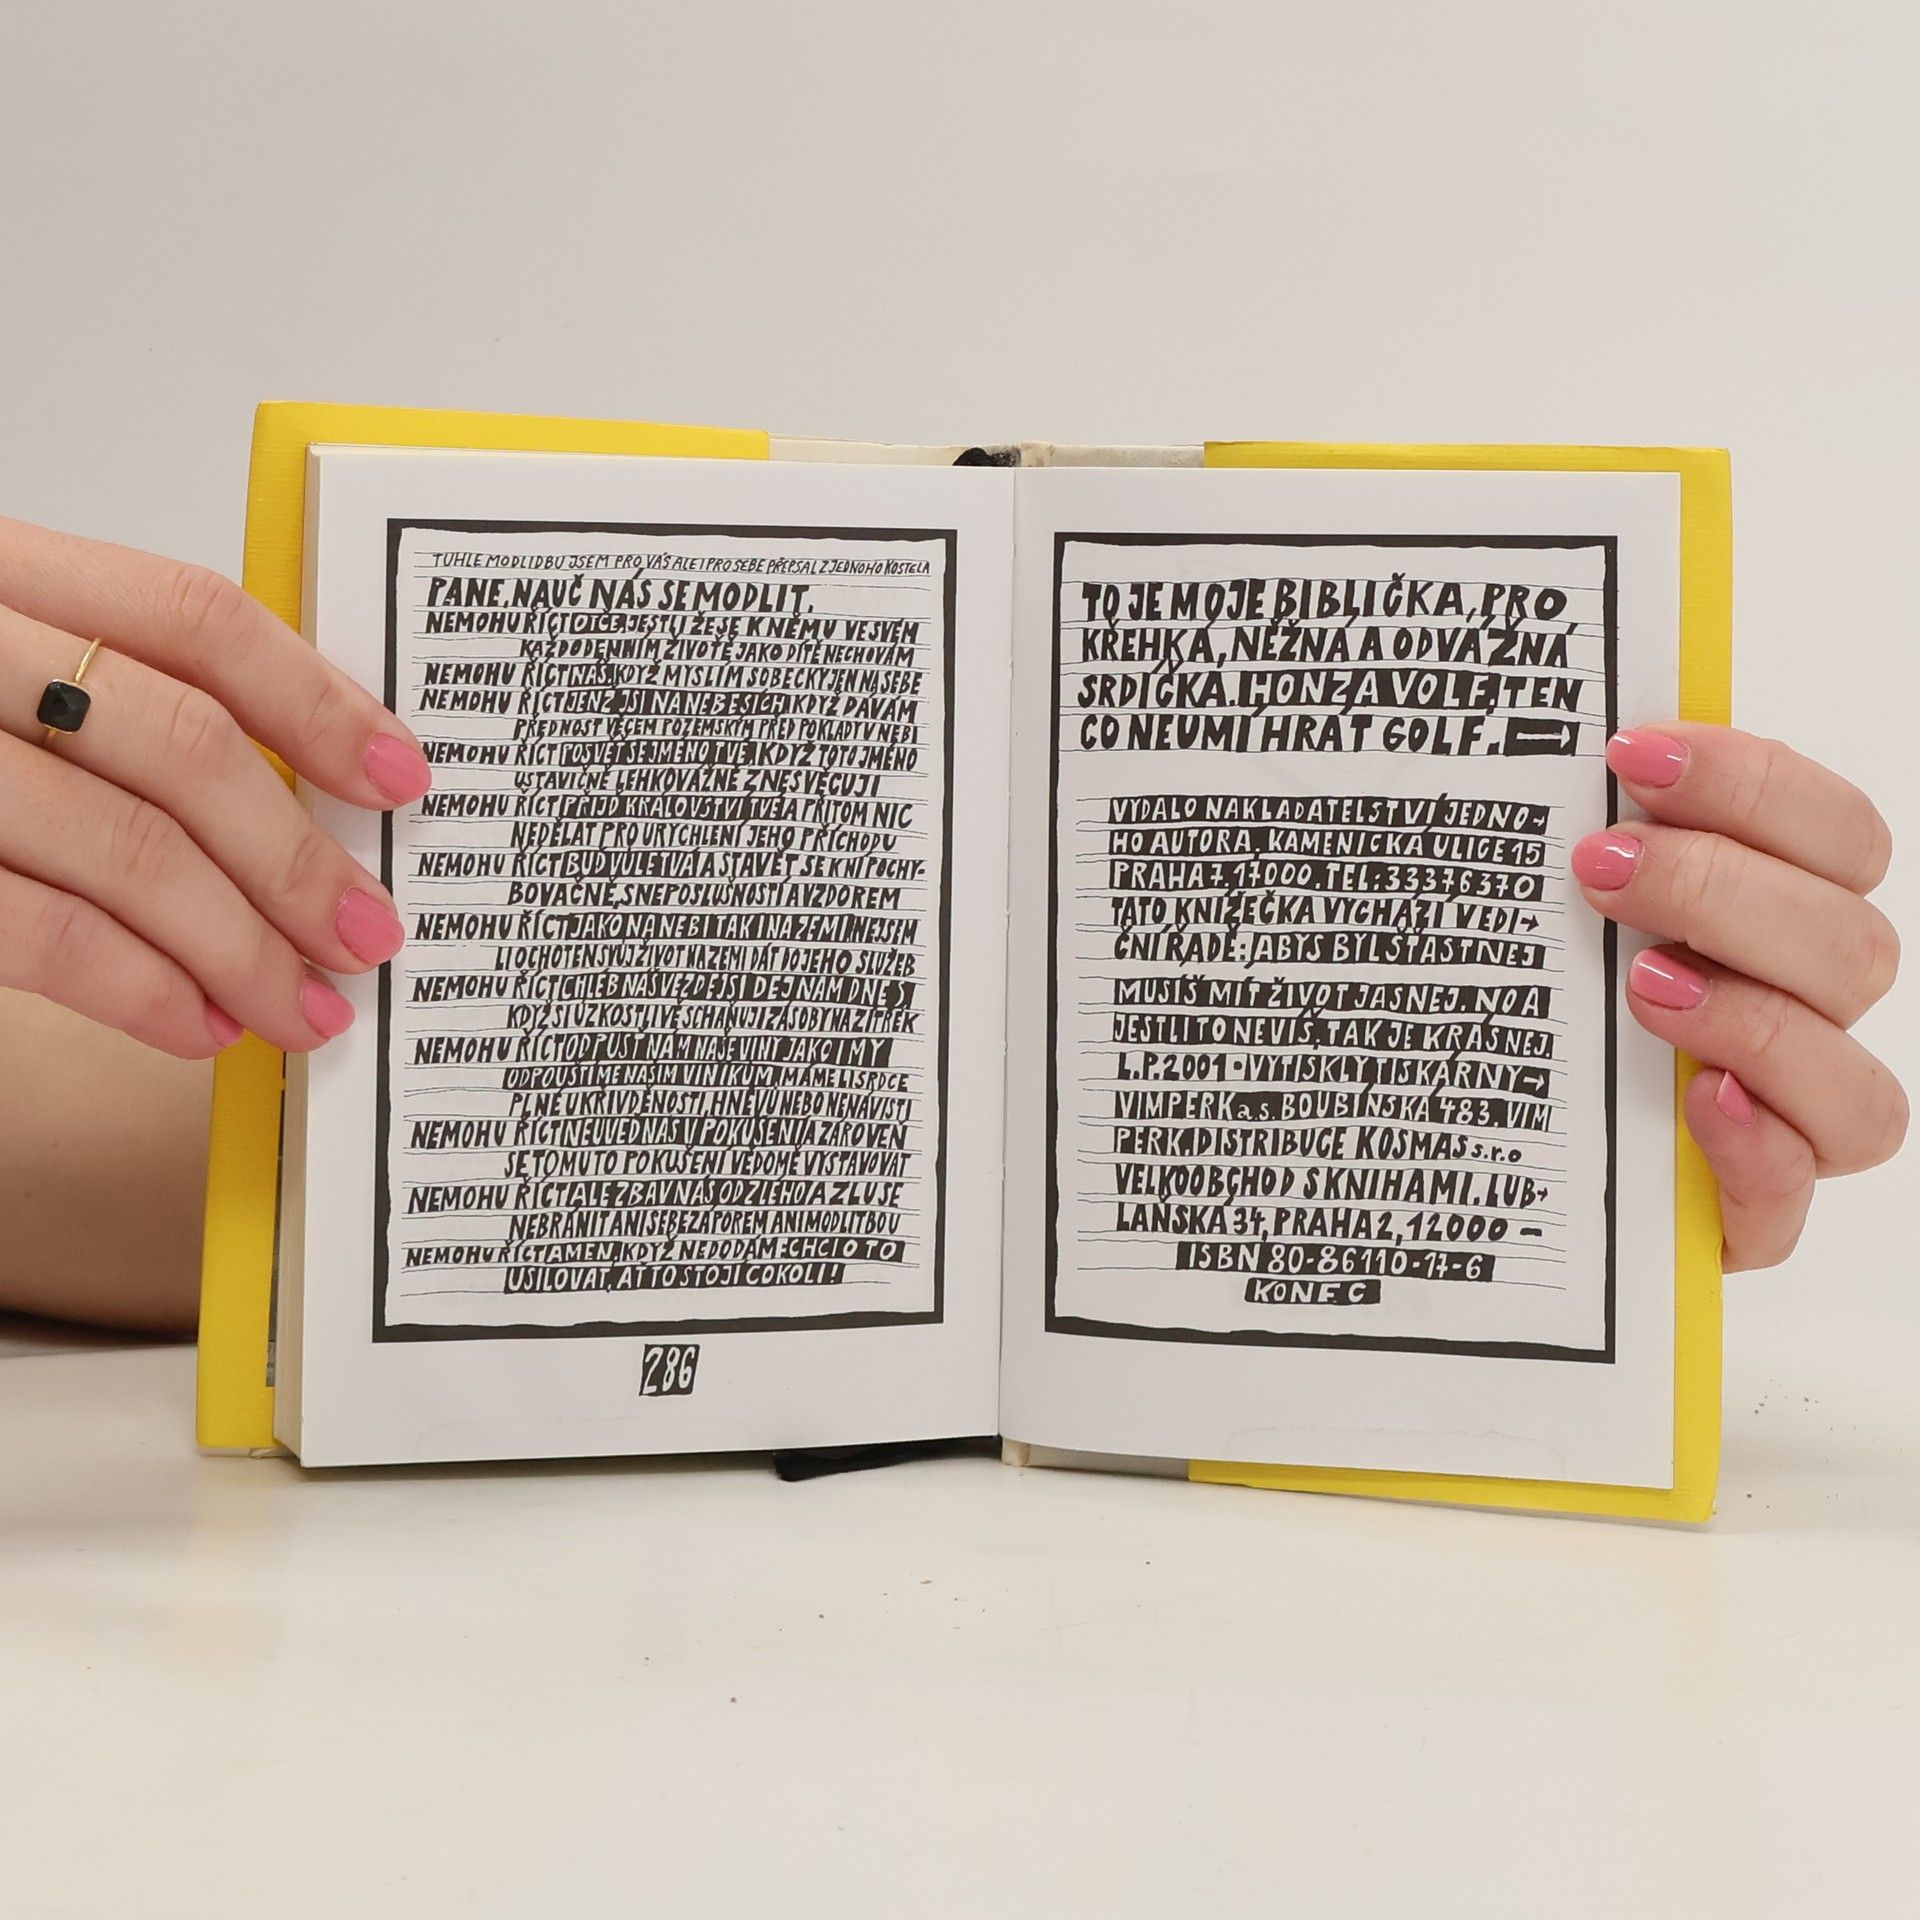 TUHLE MODLIDBU JSEM PRO VÁS ALE I PRO SEBE PŘEPSAL Z JEDNOHO KOSTELA
PANE, NAUČ NÁS SE MODLIT.
NEMOHU ŘÍCT OTČE, JESTLI ŽE SE K NĚMU VE SVÉM
KAŽDODENNÍM ŽIVOTĚ JAKO DÍTĚ NECHOVÁM
NEMOHU ŘÍCT NÁŠ, KDYŽ MYSLÍM SOBECKY JEN NA SEBE
NEMOHU ŘÍCT JENŽ JSI NA NEBESÍCH, KDYŽ DÁVÁM
PŘEDNOST VĚCEM POZEMSKÝM PŘED POKLADY V NEBI
NEMOHU ŘÍCT POSVĚŤ SE JMÉNO TVÉ, KDYŽ TOTO JMÉNO
USTAVIČNĚ LEHKOVÁŽNĚ ZNESVĚCUJI
NEMOHU ŘÍCT PŘIJĎ KRÁLOVSTVÍ TVÉ A PŘITOM NIC
NEDĚLAT PRO URYCHLENÍ JEHO PŘÍCHODU
NEMOHU ŘÍCT BUĎ VŮLE TVÁ A STAVĚT SE K NÍ POCHY-
BOVAČNĚ, S NEPOSLUŠNOSTÍ A VZDOREM
NEMOHU ŘÍCT JAKO NA NEBI TAK I NA ZEMI, NEJSEM
LI OCHOTEN SVŮJ ŽIVOT NA ZEMI DÁT DO JEHO SLUŽEB
NEMOHU ŘÍCT CHLÉB NÁŠ VEZDEJŠÍ DEJ NÁM DNES,
KDYŽ SI ÚZKOSTLIVĚ SCHAŇUJI ZÁSOBY NA ZÍTŘEK
NEMOHU ŘÍCT ODPUSŤ NÁM NAŠE VINY JAKO I MY
ODPOUŠTÍME NAŠIM VINÍKŮM, MÁME LI SRDCE
PLNÉ UKŘIVDĚNOSTI, HNĚVU NEBO NENÁVISTI
NEMOHU ŘÍCT NEUVEĎ NÁS V POKUŠENÍ A ZÁROVEŇ
SE TOMUTO POKUŠENÍ VĚDOMĚ VYSTAVOVAT
NEMOHU ŘÍCT ALE ZBAV NÁS OD ZLÉHO A ZLU SE
NEBRÁNIT ANI SEBEZÁPOREM ANI MODLITBOU
NEMOHU ŘÍCT AMEN, KDYŽ NEDODÁM: CHCI O TO
USILOVAT, AŤ TO STOJÍ COKOLI!
286
TO JE MOJE BIBLIČKA, PRO
KŘEHKÁ, NĚŽNÁ A ODVÁŽNÁ
SRDÍČKA. HONZA VOLF, TEN
CO NEUMÍ HRÁT GOLF. →
VYDALO NAKLADATELSTVÍ JEDNO→
HO AUTORA. KAMENICKÁ ULICE 15
PRAHA 7. 17000. TEL: 33376370
TATO KNÍŽEČKA VYCHÁZÍ V EDI→
ČNÍ ŘADĚ: ABYS BYL ŠŤASTNEJ
MUSÍŠ MÍT ŽIVOT JASNEJ. NO A
JESTLI TO NEVÍŠ, TAK JE KRÁSNEJ.
L.P. 2001 • VYTISKLY TISKÁRNY→
VIMPERK a.s. BOUBÍNSKÁ 483. VIM
PERK. DISTRIBUCE KOSMAS s.r.o
VELKOOBCHOD S KNIHAMI. LUB→
LAŇSKÁ 34, PRAHA 2, 12000 –
ISBN 80-86110-17-6
KONEC